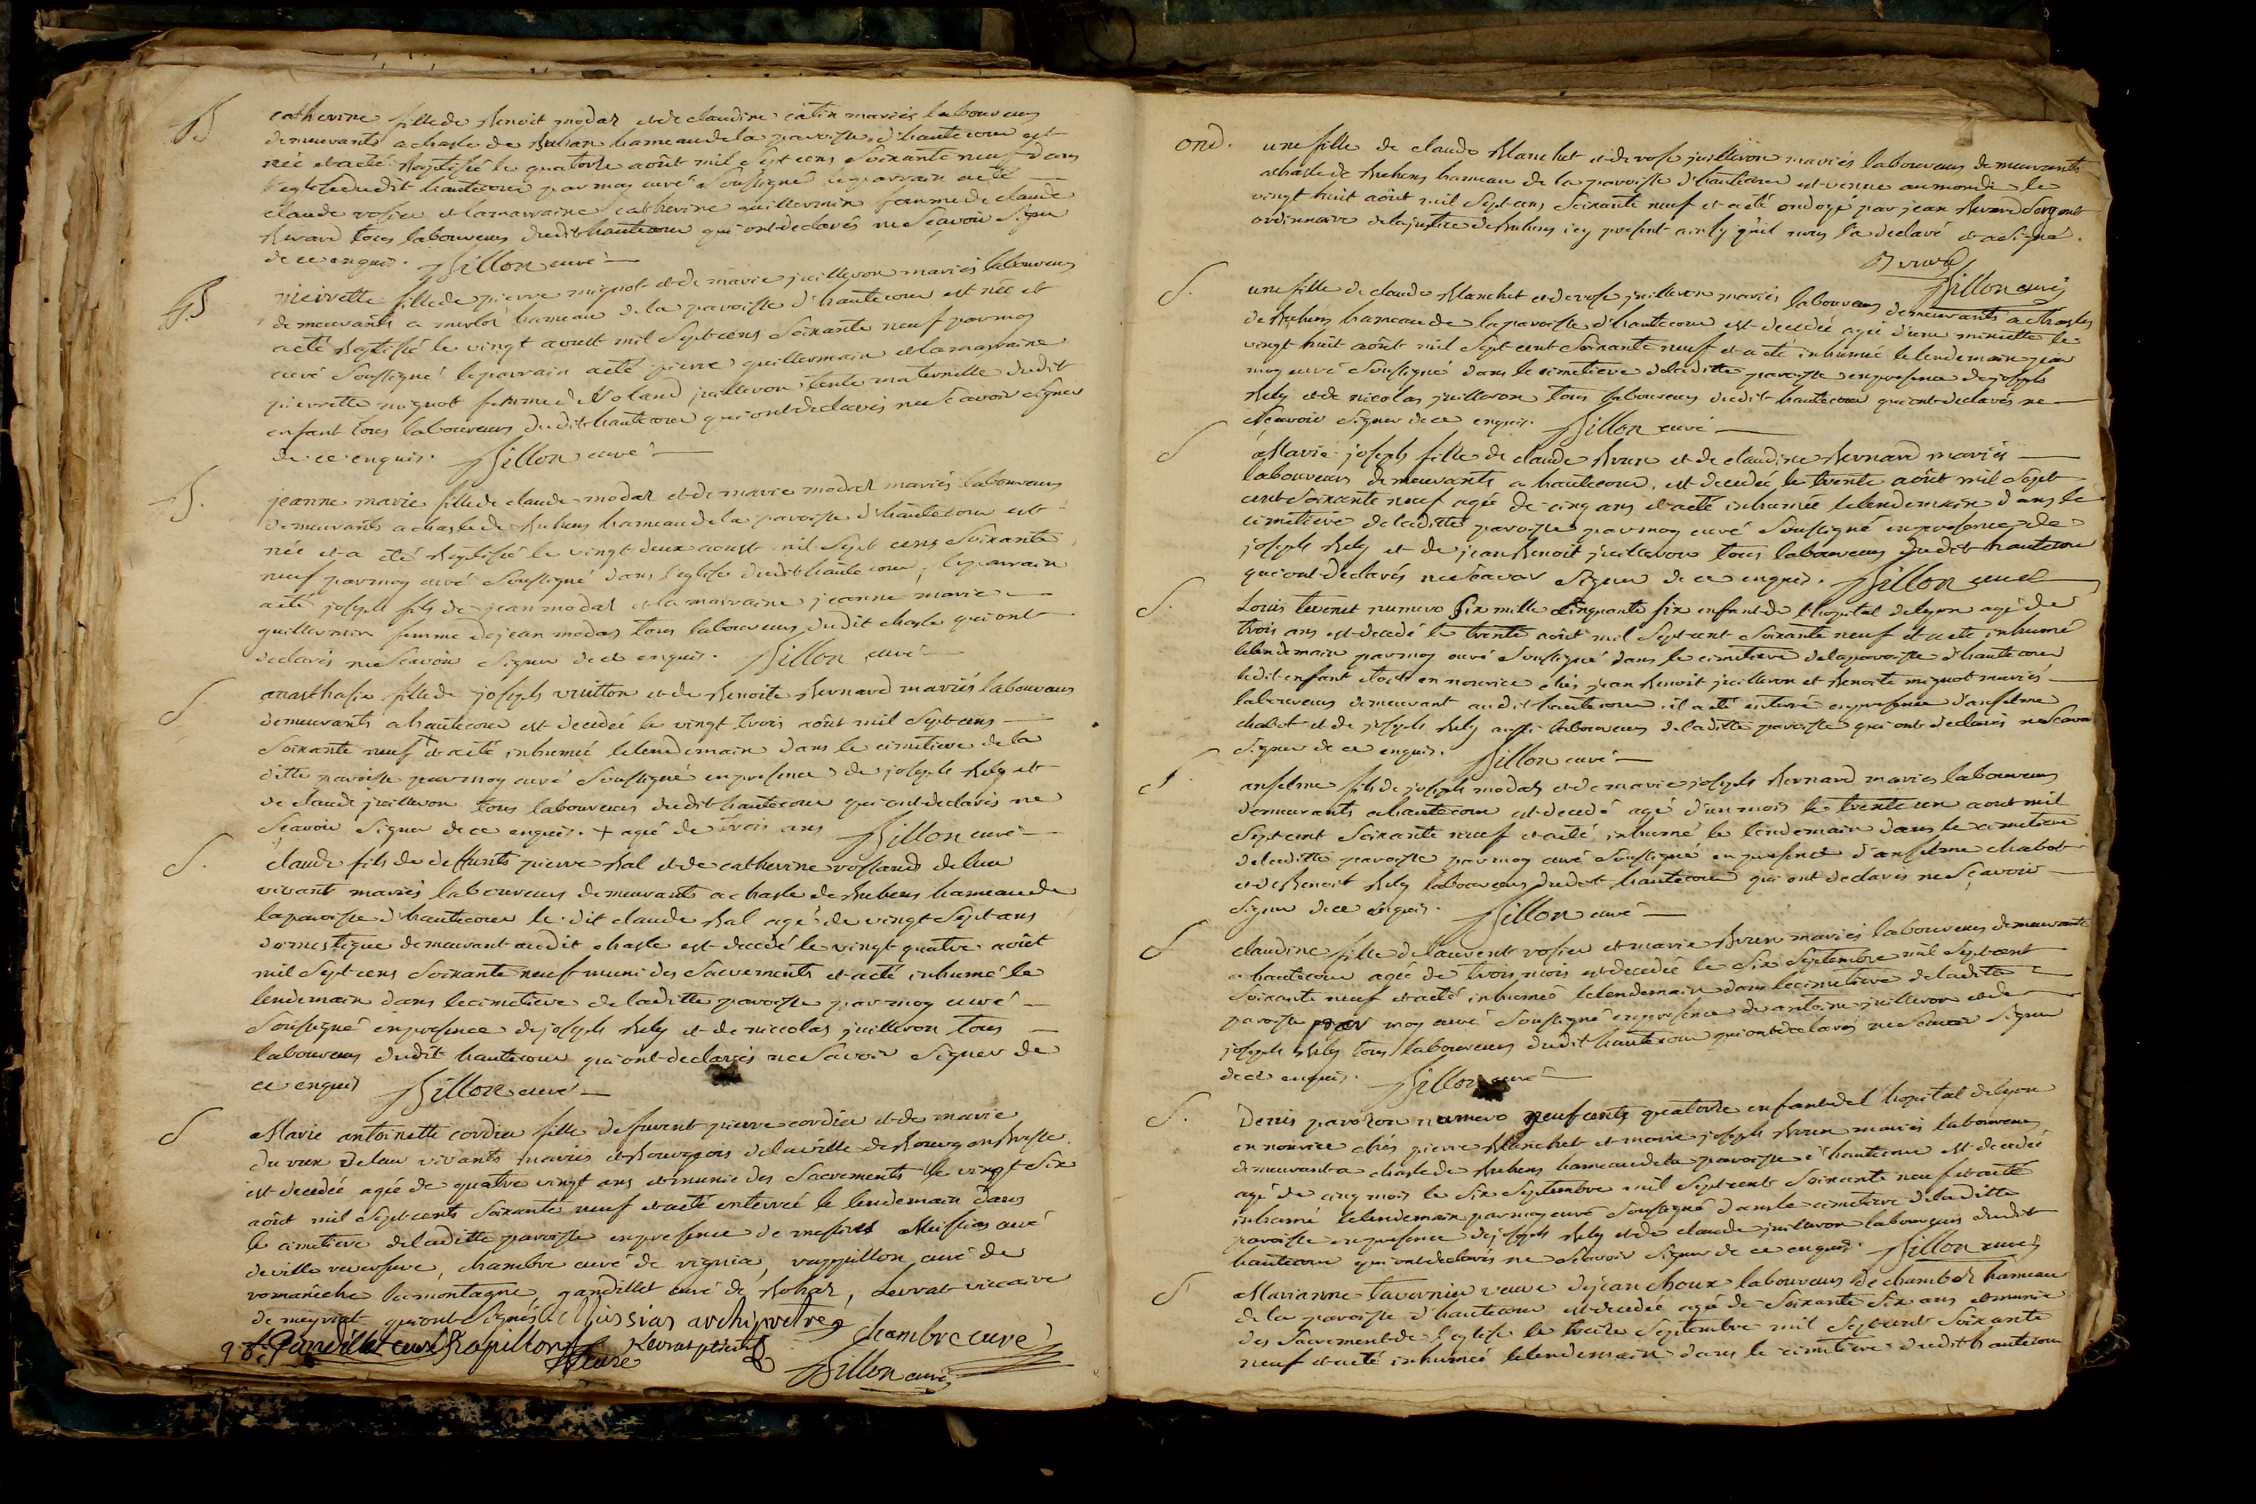 B
catherine fille de Benoit modas et de claudine catin mariés laboureurs
demeurants a chasle de hameau de la paroisse d'hautecour est
née et a eté Baptisée le quatorze août mil sept cens soixante neuf dans
l'eglise dudit hautecour par moy curé soussigné le parrain a eté
claude rosier et la marraine catherine guillermin femme de claude
tous laboureurs dudit hautecour qui ont declarés ne sçavoir signer
de ce enquis. Billon curé
B
pierrette fille de pierre mignot et de marie juilleron mariés laboureurs
demeurants a hameau de la paroisse d'hautecour est née et
a eté Baptisée le vingt aoust mil sept cens soixante neuf par moy
curé soussigné le parrain a eté pierre guillermain et la marraine
pierrette mignot femme de Roland juilleron tente maternelle dudit
enfant tous laboureurs dudit hautecour qui ont declarés ne sçavoir signer
de ce enquis. Billon curé
B.
jeanne marie fille de claude modas et de marie modas mariés laboureurs
demeurants a chasle de Buhens hameau de la paroisse d'hautecour est
née et a eté Baptisée le vingt deux aoust mil sept cens soixante
neuf par moy curé soussigné dans l'eglise dudit hautecour, le parrain
a eté joseph fils de jean modas et la marraine jeanne marie
guillermin femme de jean modas tous laboureurs dudit chasle qui ont
declarés ne sçavoir signer de ce enquis. Billon curé
S.
anasthasie fille de joseph vuitton et de Benoite Bernard mariés laboureurs
demeurants a hautecour est decedée le vingt trois août mil sept cens
soixante neuf + et a eté inhumée le lendemain dans le cimetiere de la
ditte paroisse par moy curé soussigné en presence de joseph Rely et
de claude juilleron tous laboureurs dudit hautecour qui ont declarés ne
sçavoir signer de ce enquis. + agée de trois ans Billon curé
S.
claude fils de deffunts pierre Bal et de catherine rostand de leur
vivant mariés laboureurs demeurants a chasle de Buhens hameau de
la paroisse d'hautecour le dit claude Bal agé de vingt sept ans
domestique demeurant audit chasle est decedé le vingt quatre août
mil sept cens soixante neuf muni des sacrements et a eté inhumé le
lendemain dans le cimetiere de laditte paroisse par moy curé
soussigné en presence de joseph Rely et de niccolas juilleron tous
laboureurs dudit hautecour qui ont declarés ne sçavoir signer de
ce enquis Billon curé
S
Marie antoinette cordier fille de pierre cordier et de marie
de leur vivants mariés et Bourgeois de la ville de Bourg en Bresse
est decedée agée de quatre vingt ans et munie des sacrements le vingt six
août mil sept cents soixante neuf et a eté enterrée le lendemain dans
le cimetiere de laditte paroisse en presence de messires Missias curé
de ville reversure, chambre curé de vignia, rappillon curé de
romanêche la montagne, gandillet curé de Bohas, Levrat viccaire
de meyriat qui ont signés. Missias archiprètre chambre curé
Gandillet curé Rapillon Levrat ptre
curé Billon curé
ond.
une fille de claude Blanchet et de rose juilleron mariés laboureurs demeurants
a chasle de Buhens hameau de la paroisse d'hautecour est venue au monde le
vingt huit août mil sept cens soixante neuf et a eté ondoyé par jean sergent
ordinnaire de la justice de Buhens icy present ainsy qu'il nous l'a declaré et a signé.
Billon curé
S.
une fille de claude Blanchet et de rose juilleron mariés laboureurs demeurants a chasles
de Buhens hameau de la paroisse d'hautecour est decedée agée d'une minutte le
vingt huit août mil sept cent soixante neuf et a eté inhumée le lendemain par
moy curé soussigné dans le cimetiere de laditte paroisse en presence de joseph
Rely et de nicolas juilleron tous laboureurs dudit hautecour qui ont declarés ne
sçavoir signer de ce enquis. Billon curé
S
Marie joseph fille de claude et de claudine Bernard mariés
laboureurs demeurants a hautecour, est decedée le trente août mil sept
cent soixante neuf agée de cinq ans et a eté inhumée le lendemain dans le
cimetiere de laditte paroisse par moy curé soussigné en presence de
joseph Rely et de jean Benoit juilleron tous laboureurs dudit hautecour
qui ont declarés ne sçavoir signer de ce enquis. Billon curé
S.
Louis tevenet numero six mille cinquante six enfant de l'hopital de lyon agé de
trois ans est decedé le trente août mil sept cent soixante neuf et a eté inhumé
le lendemain par moy curé soussigné dans le cimetiere de la paroisse d'hautecour
ledit enfant etoit en nourrice chés jean Benoit juilleron et Benoite mignot mariés
laboureurs demeurant audit hautecour. il a eté enterré en presence d'anselme
chabot et de joseph Rely aussi laboureurs de laditte paroisse qui ont declarés ne sçavoir
signer de ce enquis. Billon curé
S
anselme fils de joseph modas et de marie joseph Bernard mariés laboureurs
demeurants a hautecour est decedé agé d'un mois le trente un aout mil
sept cent soixante neuf et a eté inhumé le lendemain dans le cimetiere
de laditte paroisse par moy curé soussigné en presence d'anselme chabot
et de Benoit Rely laboureurs dudit hautecour qui ont declarés ne sçavoir
signer de ce enquis. Billon curé
S
claudine fille de laurent rosier et marie mariés laboureurs demeurants
a hautecour agée de trois mois est decedée le six septembre mil sept cent
soixante neuf et a eté inhumée le lendemain dans le cimetiere de ladite
paroisse par moy curé soussigné en presence de antoine juilleron et de
joseph Rely tous laboureurs dudit hautecour qui ont declarés ne sçavoir signer
de ce enquis. Billon curé
S.
Denis numero neuf cents quatorze enfant de l'hopital de lyon
en nourrice chés pierre Blanchet et marie joseph mariés laboureurs
demeurant a chasle de Buhens hameau de la paroisse d'hautecour est decedé
agé de cinq mois le six septembre mil sept cent soixante neuf et a eté
inhumé le lendemain par moy curé soussigné dans le cimetiere de laditte
paroisse en presence de joseph Rely et de claude juilleron laboureurs dudit
hautecour qui ont declarés ne sçavoir signer de ce enquis. Billon curé
S
Marianne tavernier veuve de jean choux laboureurs de chambod hameau
de la paroisse d'hautecour est decedée agée de soixante six ans et munie
des sacrement de l'eglise le treize septembre mil sept cent soixante
neuf et a eté inhumée le lendemain dans le cimetiere dudit hautecour